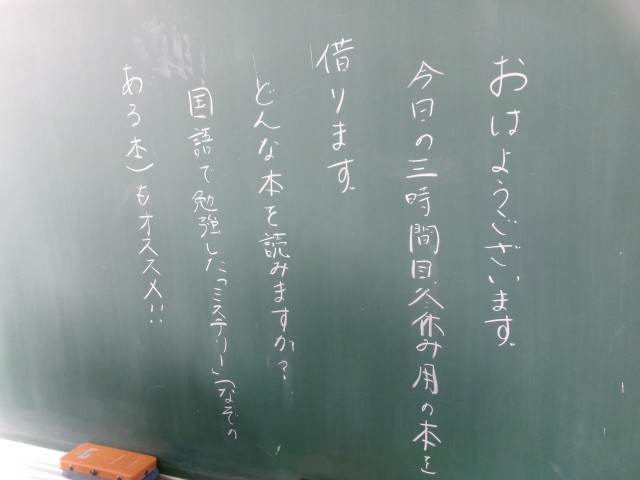 おはようございます。
今日の三時間目、冬休み用の本を
借ります。
どんな本を読みますか?
国語で勉強した「ミステリー」(なぞの
ある本)もオススメ!!